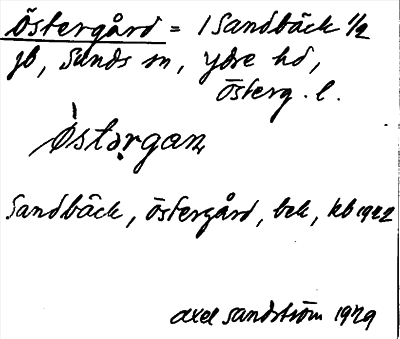 Östergård = 1 Sandbäck 1/2
jb, Sunds sn, Ydre hd,
Österg. l.
Östərgan
Sandbäck, Östergård, bek, kb 1922
Axel Sandström 1929